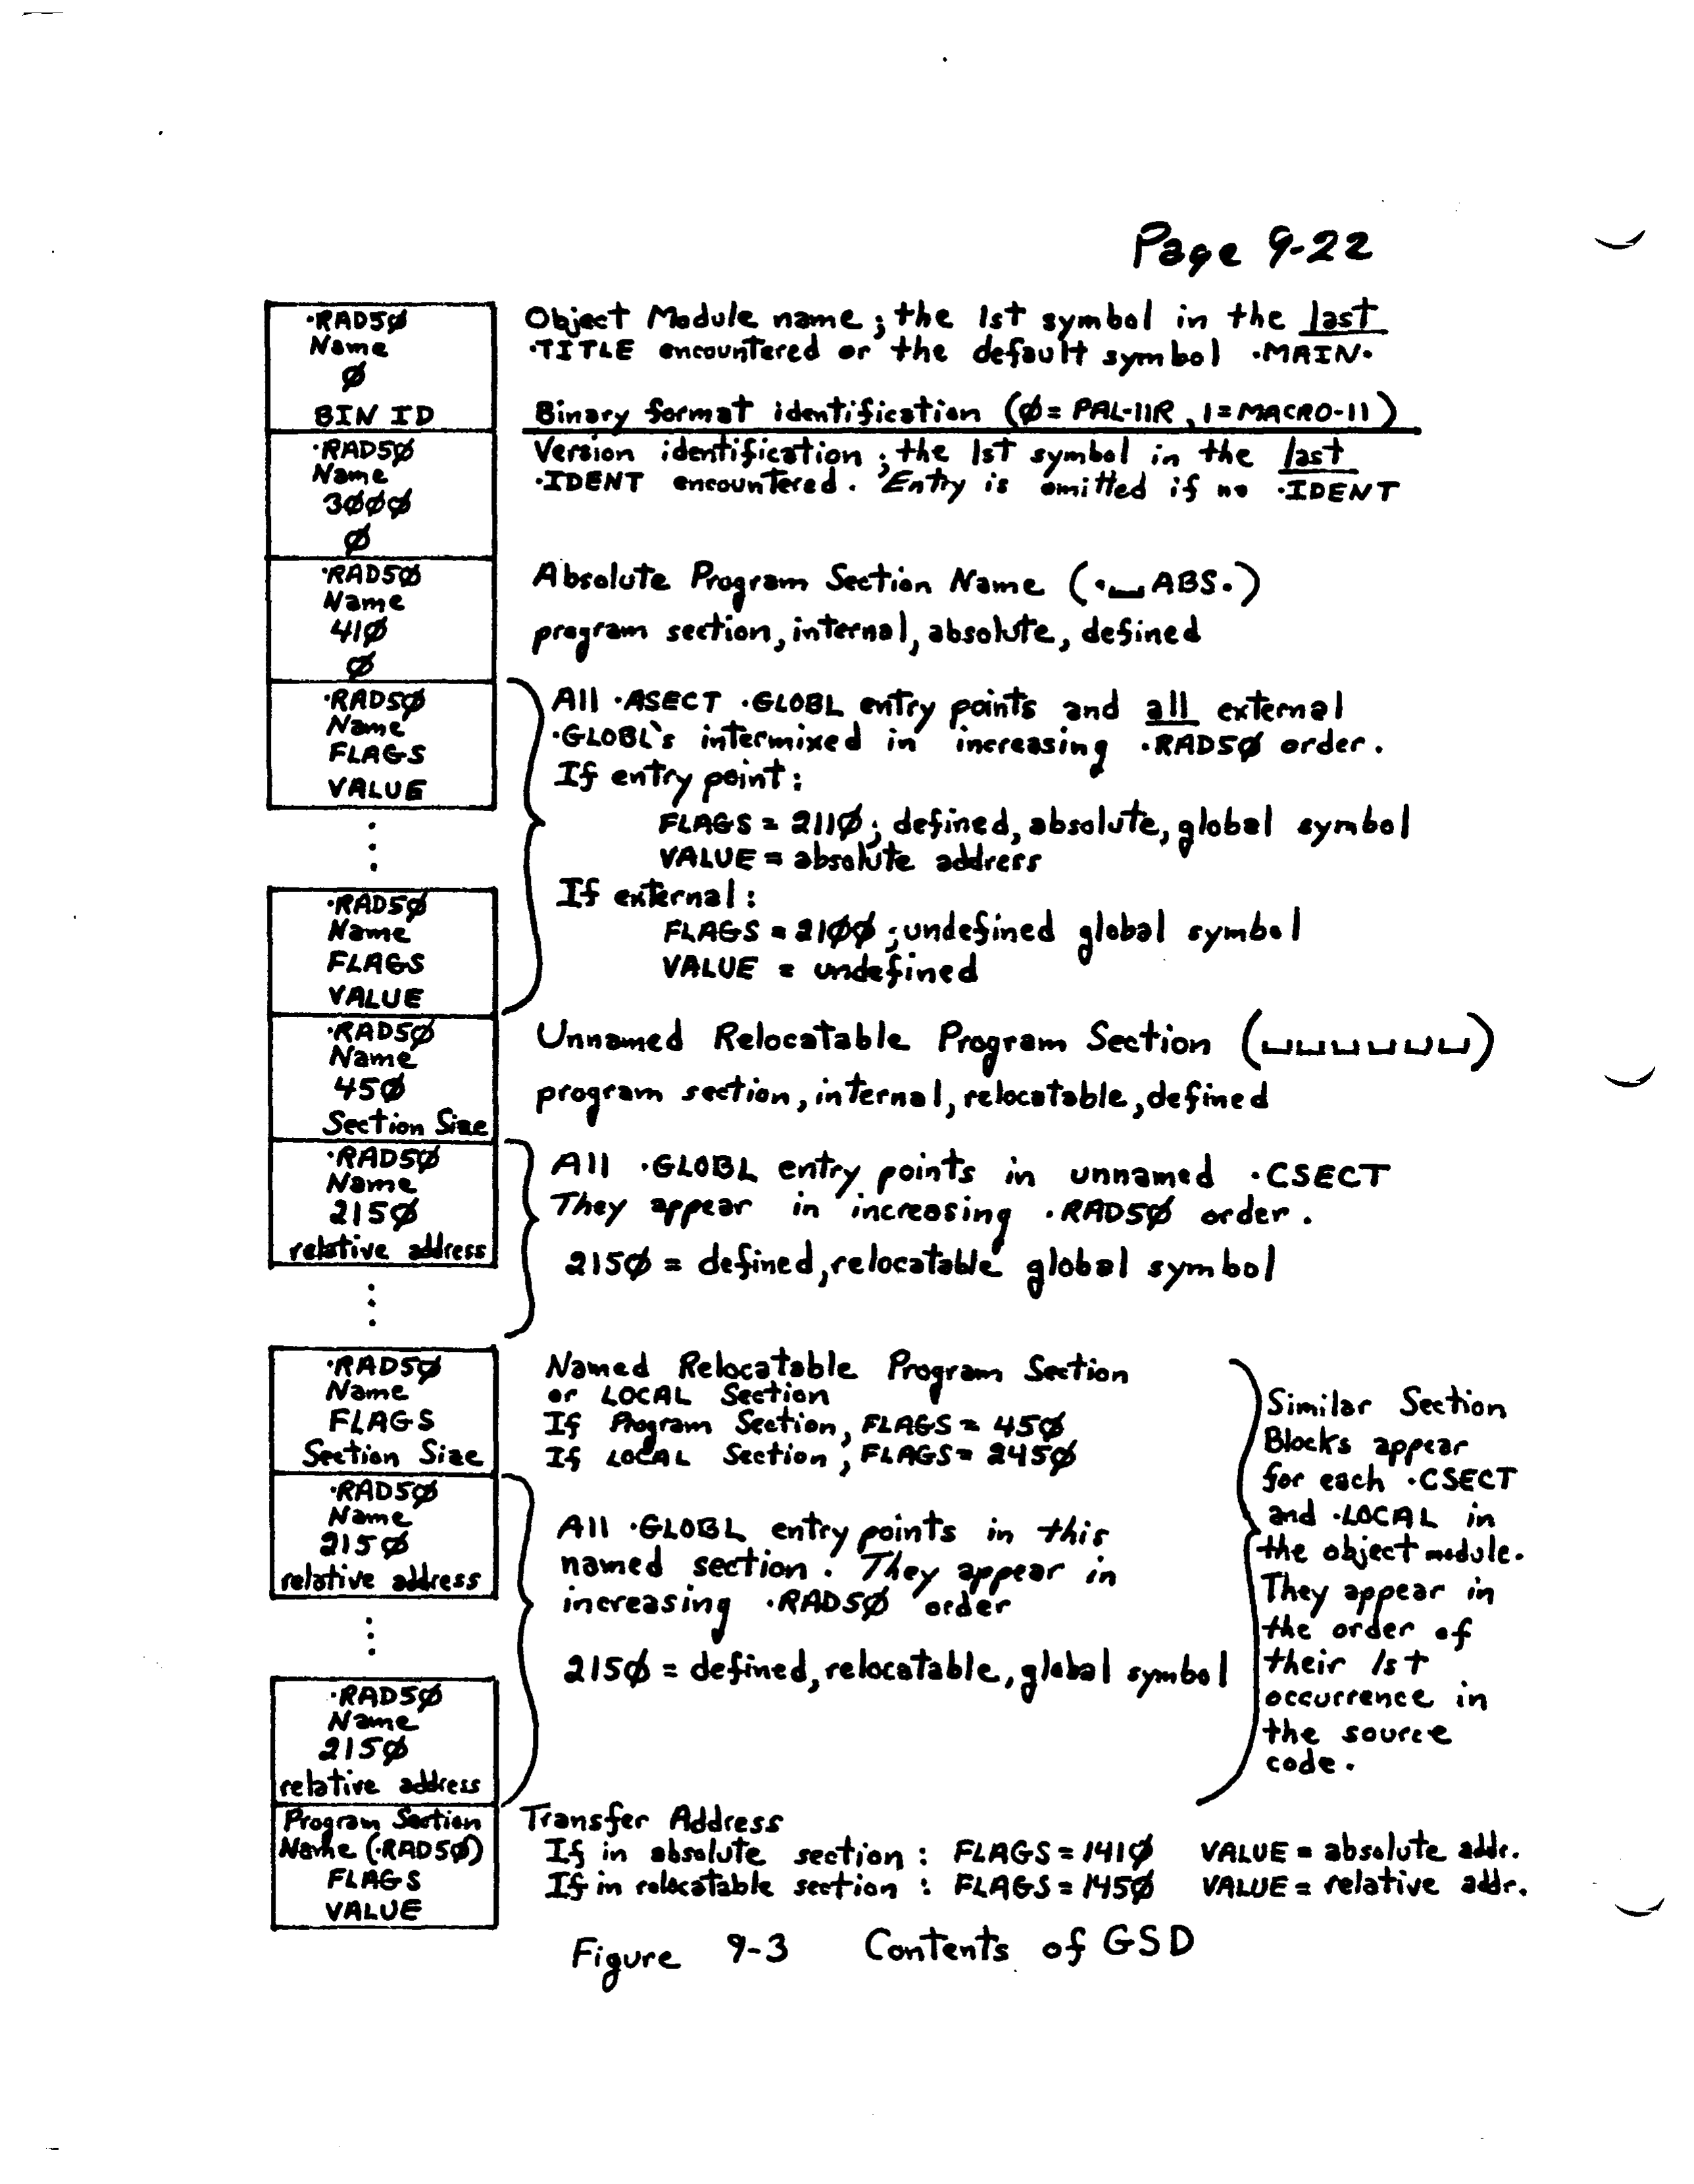 Page 9-22
.RAD5Ø
Name
Ø
BIN ID
Object Module name; the 1st symbol in the last
.TITLE encountered or the default symbol .MAIN.
Binary format identification (Ø= PAL-11R, 1=MACRO-11)
.RAD5Ø
Name
3ØØØ
Ø
Version identification; the 1st symbol in the last
.IDENT encountered. Entry is omitted if no .IDENT
.RAD5Ø
Name
41Ø
Ø
Absolute Program Section Name (.␣ABS.)
program section, internal, absolute, defined
.RAD5Ø
Name
FLAGS
VALUE
.RAD5Ø
Name
FLAGS
VALUE
All .ASECT .GLOBL entry points and all external
.GLOBL's intermixed in increasing .RAD5Ø order.
If entry point:
FLAGS = 211Ø; defined, absolute, global symbol
VALUE = absolute address
If external:
FLAGS = 21ØØ; undefined global symbol
VALUE = undefined
.RAD5Ø
Name
45Ø
Section Size
Unnamed Relocatable Program Section (␣␣␣␣␣␣)
program section, internal, relocatable, defined
.RAD5Ø
Name
215Ø
relative address
All .GLOBL entry points in unnamed .CSECT
They appear in increasing .RAD5Ø order.
215Ø = defined, relocatable global symbol
.RAD5Ø
Name
FLAGS
Section Size
Named Relocatable Program Section
or LOCAL Section
If Program Section, FLAGS = 45Ø
If LOCAL Section, FLAGS = 245Ø
.RAD5Ø
Name
215Ø
relative address
.RAD5Ø
Name
215Ø
relative address
All .GLOBL entry points in this
named section. They appear in
increasing .RAD5Ø order
215Ø = defined, relocatable, global symbol
Similar Section
Blocks appear
for each .CSECT
and .LOCAL in
the object module.
They appear in
the order of
their 1st
occurrence in
the source
code.
Program Section
Name (.RAD5Ø)
FLAGS
VALUE
Transfer Address
If in absolute section: FLAGS = 141Ø VALUE = absolute addr.
If in relocatable section: FLAGS = 145Ø VALUE = relative addr.
Figure 9-3 Contents of GSD